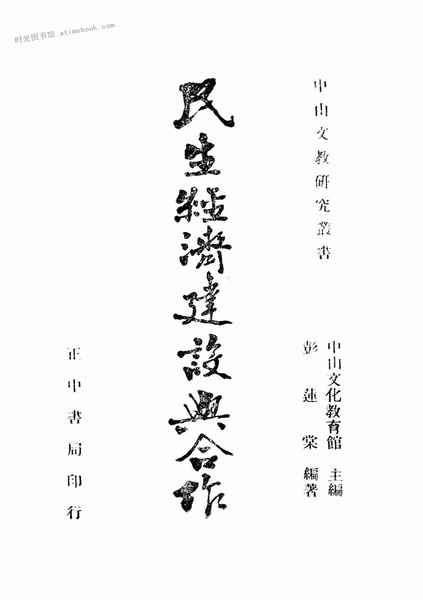 时光图书馆 atimebook.com
中山文教研究叢書
中山文化教育館 主編
彭蓮棠 編著
民生經濟建設與合作
正中書局印行